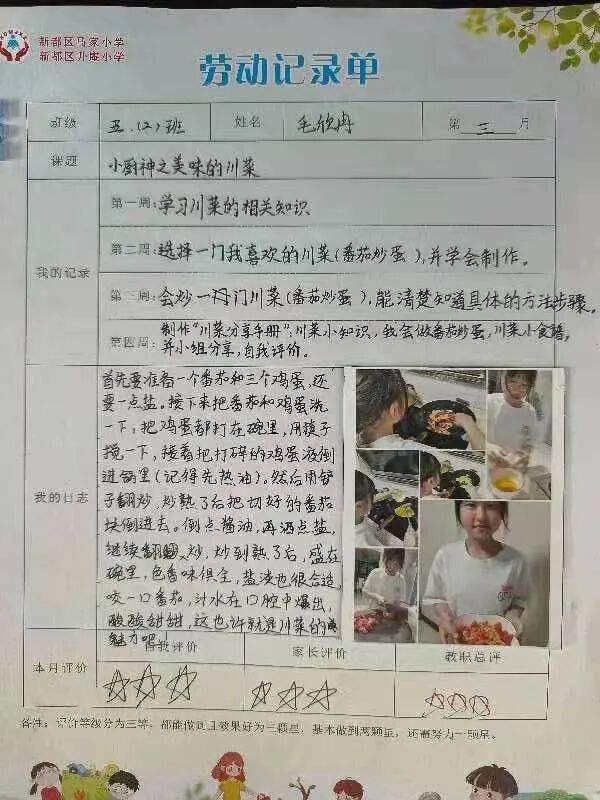 新都区马家小学
新都区升庵小学
劳动记录单
班级 五.(2)班 姓名 毛欣冉 第 三 月
课题 小厨神之美味的川菜
我的记录
第一周:学习川菜的相关知识
第二周:选择一门我喜欢的川菜(番茄炒蛋),并学会制作。
第三周:会炒一门川菜(番茄炒蛋),能清楚知道具体的方法步骤。
第四周:制作"川菜分享手册":川菜小知识,我会做番茄炒蛋,川菜小食谱,
并小组分享,自我评价。
我的日志
首先要准备一个番茄和三个鸡蛋,还
要一点盐。接下来把番茄和鸡蛋洗
一下,把鸡蛋都打在碗里,用筷子
搅一下,接着把打碎的鸡蛋液倒
进锅里(记得先热油)。然后用铲
子翻炒,炒熟了后把切好的番茄
块倒进去。倒点酱油,再洒点盐,
继续翻炒,炒到熟了后,盛在
碗里,色香味俱全,盐淡也很合适,
咬一口番茄,汁水在口腔中爆出,
酸酸甜甜,这也许就是川菜的
魅力吧
本月评价 自我评价 家长评价 教职总评
备注:评价等级分为三等,都能做到且效果好为三颗星,基本做到两颗星,还需努力一颗星。